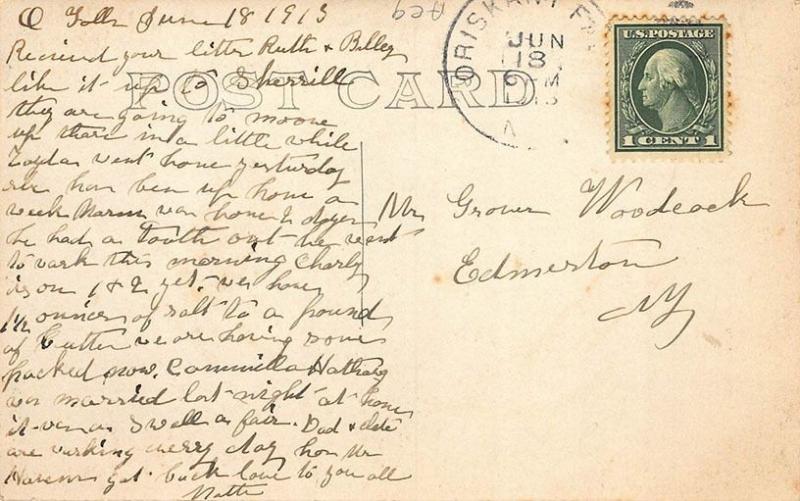 O Falls June 18 1913
Received your letter Ruth & Billey
like it up to Sherrill
they are going to moove
up there in a little while
went home yesturday
she has ben up home a
week was home 2 dayes
he had a tooth out he went
to work this morning Charly
is on 1 & 2 yet. we have
1½ ounces of salt to a pound
of butter we are having some
packed now. Cammilla Hathaway
was married last night at home
it was a swell a fair. Dad &
are working every day has Mr
got back love to you all
POST CARD
ORISKANY F
JUN
18
M
U.S. POSTAGE
1 CENT 1
Mr Grover Woodcock
Edmerton
NY